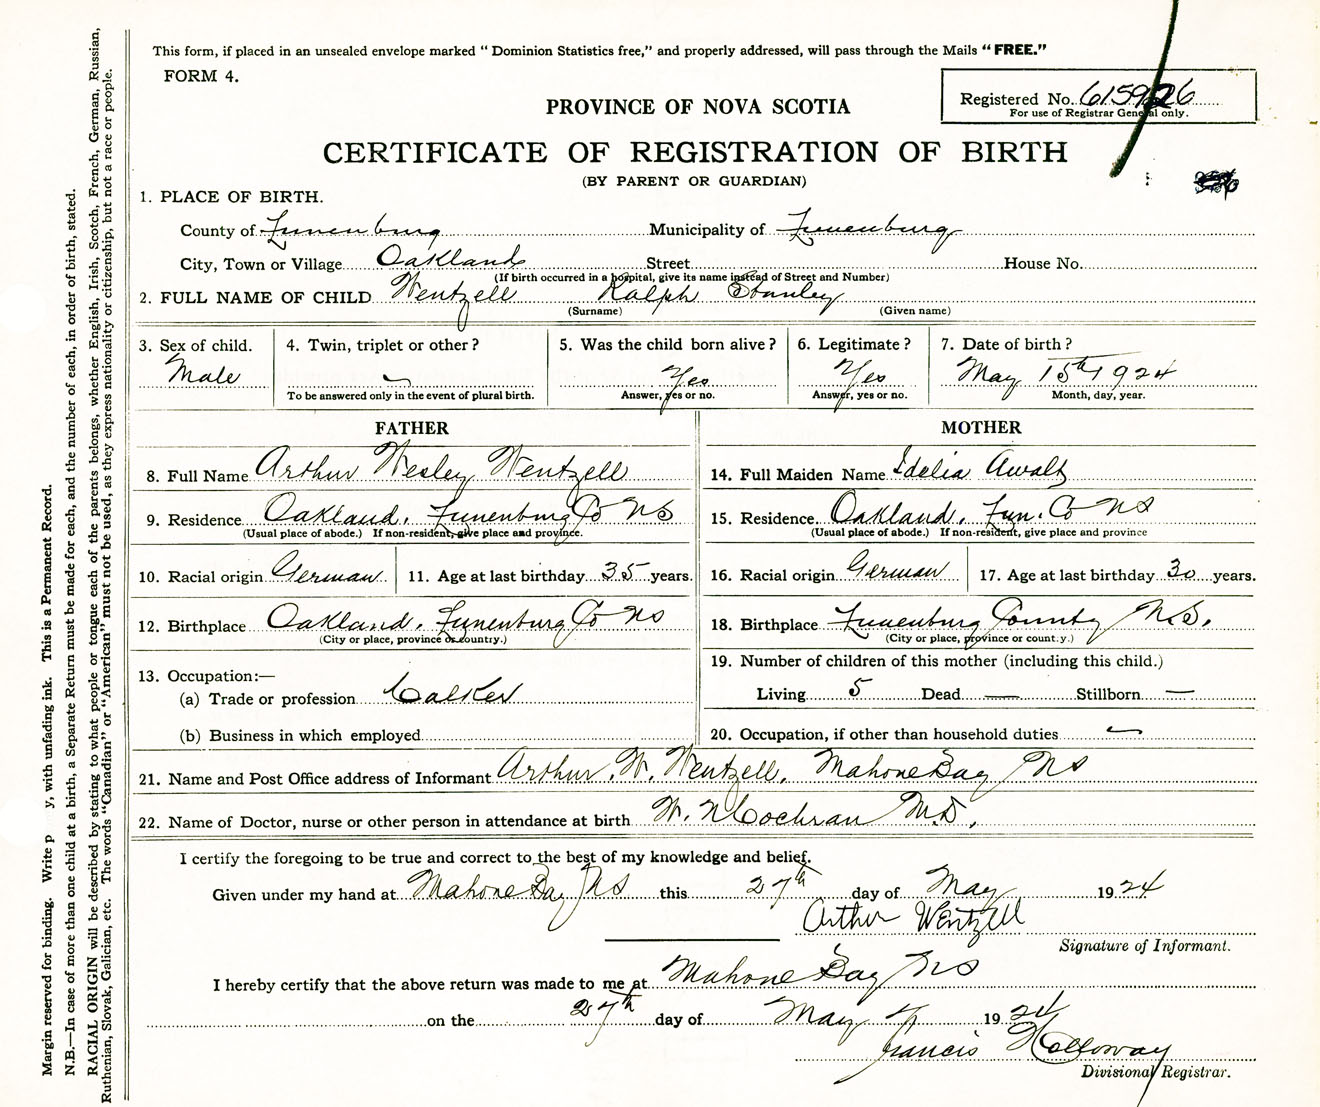 This form, if placed in an unsealed envelope marked " Dominion Statistics free," and properly addressed, will pass through the Mails "FREE."
FORM 4.
Registered No. 615926
For use of Registrar General only.
PROVINCE OF NOVA SCOTIA
CERTIFICATE OF REGISTRATION OF BIRTH
(BY PARENT OR GUARDIAN)
1. PLACE OF BIRTH.
County of Lunenburg Municipality of Lunenburg
City, Town or Village Oakland Street House No.
(If birth occurred in a hospital, give its name instead of Street and Number)
2. FULL NAME OF CHILD Wentzell Ralph Stanley
(Surname) (Given name)
3. Sex of child. 4. Twin, triplet or other? 5. Was the child born alive? 6. Legitimate? 7. Date of birth?
Male Yes Yes May 15th 1924
To be answered only in the event of plural birth. Answer, yes or no. Answer, yes or no. Month, day, year.
FATHER MOTHER
8. Full Name Arthur Wesley Wentzell 14. Full Maiden Name Idelia Awalt
9. Residence Oakland, Lunenburg Co NS 15. Residence Oakland, Lun. Co NS
(Usual place of abode.) If non-resident, give place and province. (Usual place of abode.) If non-resident, give place and province
10. Racial origin German 11. Age at last birthday 35 years. 16. Racial origin German 17. Age at last birthday 30 years.
12. Birthplace Oakland, Lunenburg Co NS 18. Birthplace Lunenburg County N.S.
(City or place, province or country.) (City or place, province or count.y.)
13. Occupation:— 19. Number of children of this mother (including this child.)
(a) Trade or profession Calker Living 5 Dead — Stillborn —
(b) Business in which employed 20. Occupation, if other than household duties
21. Name and Post Office address of Informant Arthur. W. Wentzell, Mahone Bay NS
22. Name of Doctor, nurse or other person in attendance at birth W. N Cochran M.D.
I certify the foregoing to be true and correct to the best of my knowledge and belief.
Given under my hand at Mahone Bay NS this 27th day of May 1924
Arthur Wentzell
Signature of Informant.
I hereby certify that the above return was made to me at Mahone Bay NS
on the 27th day of May 1924
Francis Holloway
Divisional Registrar.
Margin reserved for binding. Write p y, with unfading ink. This is a Permanent Record.
N.B.—In case of more than one child at a birth, a Separate Return must be made for each, and the number of each, in order of birth, stated.
RACIAL ORIGIN will be described by stating to what people or tongue each of the parents belongs, whether English, Irish, Scotch, French, German, Russian,
Ruthenian, Slovak, Galician, etc. The words "Canadian" or "American" must not be used, as they express nationality or citizenship, but not a race or people.